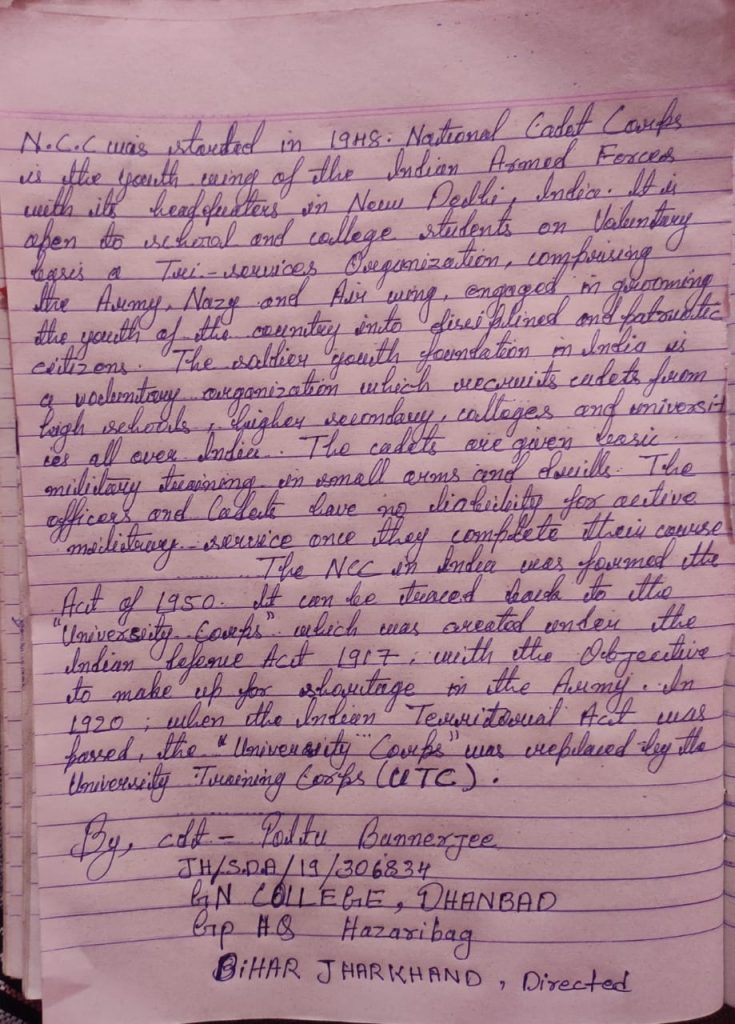 N.C.C was started in 1948. National Cadet Corps
is the youth wing of the Indian Armed Forces
with its headquaters in New Delhi, India. It is
open to school and college students on Voluntary
basis a Tri-services Organization, comprising
the Army, Navy and Air wing, engaged in grooming
the youth of the country into disciplined and patriotic
citizens. The soldier youth foundation in India is
a voluntary organization which recruits cadets from
high schools, higher secondary, colleges and universit
ies all over India. The cadets are given basic
military training in small arms and drills. The
officers and Cadets have no liability for active
military service once they complete their course
The NCC in India was formed the
Act of 1950. It can be traced back to the
"University Corps" which was created under the
Indian Defence Act 1917, with the Objective
to make up for shortage in the Army. In
1920, when the Indian Territorial Act was
passed, the "University Corps" was replaced by the
University Training Corps (UTC).
By, cdt - Poltu Bannerjee
JH/SDA/19/306834
GN COllEGE, DHANBAD
Gp HQ Hazaribag
BiHAR JHARKHAND, Directed